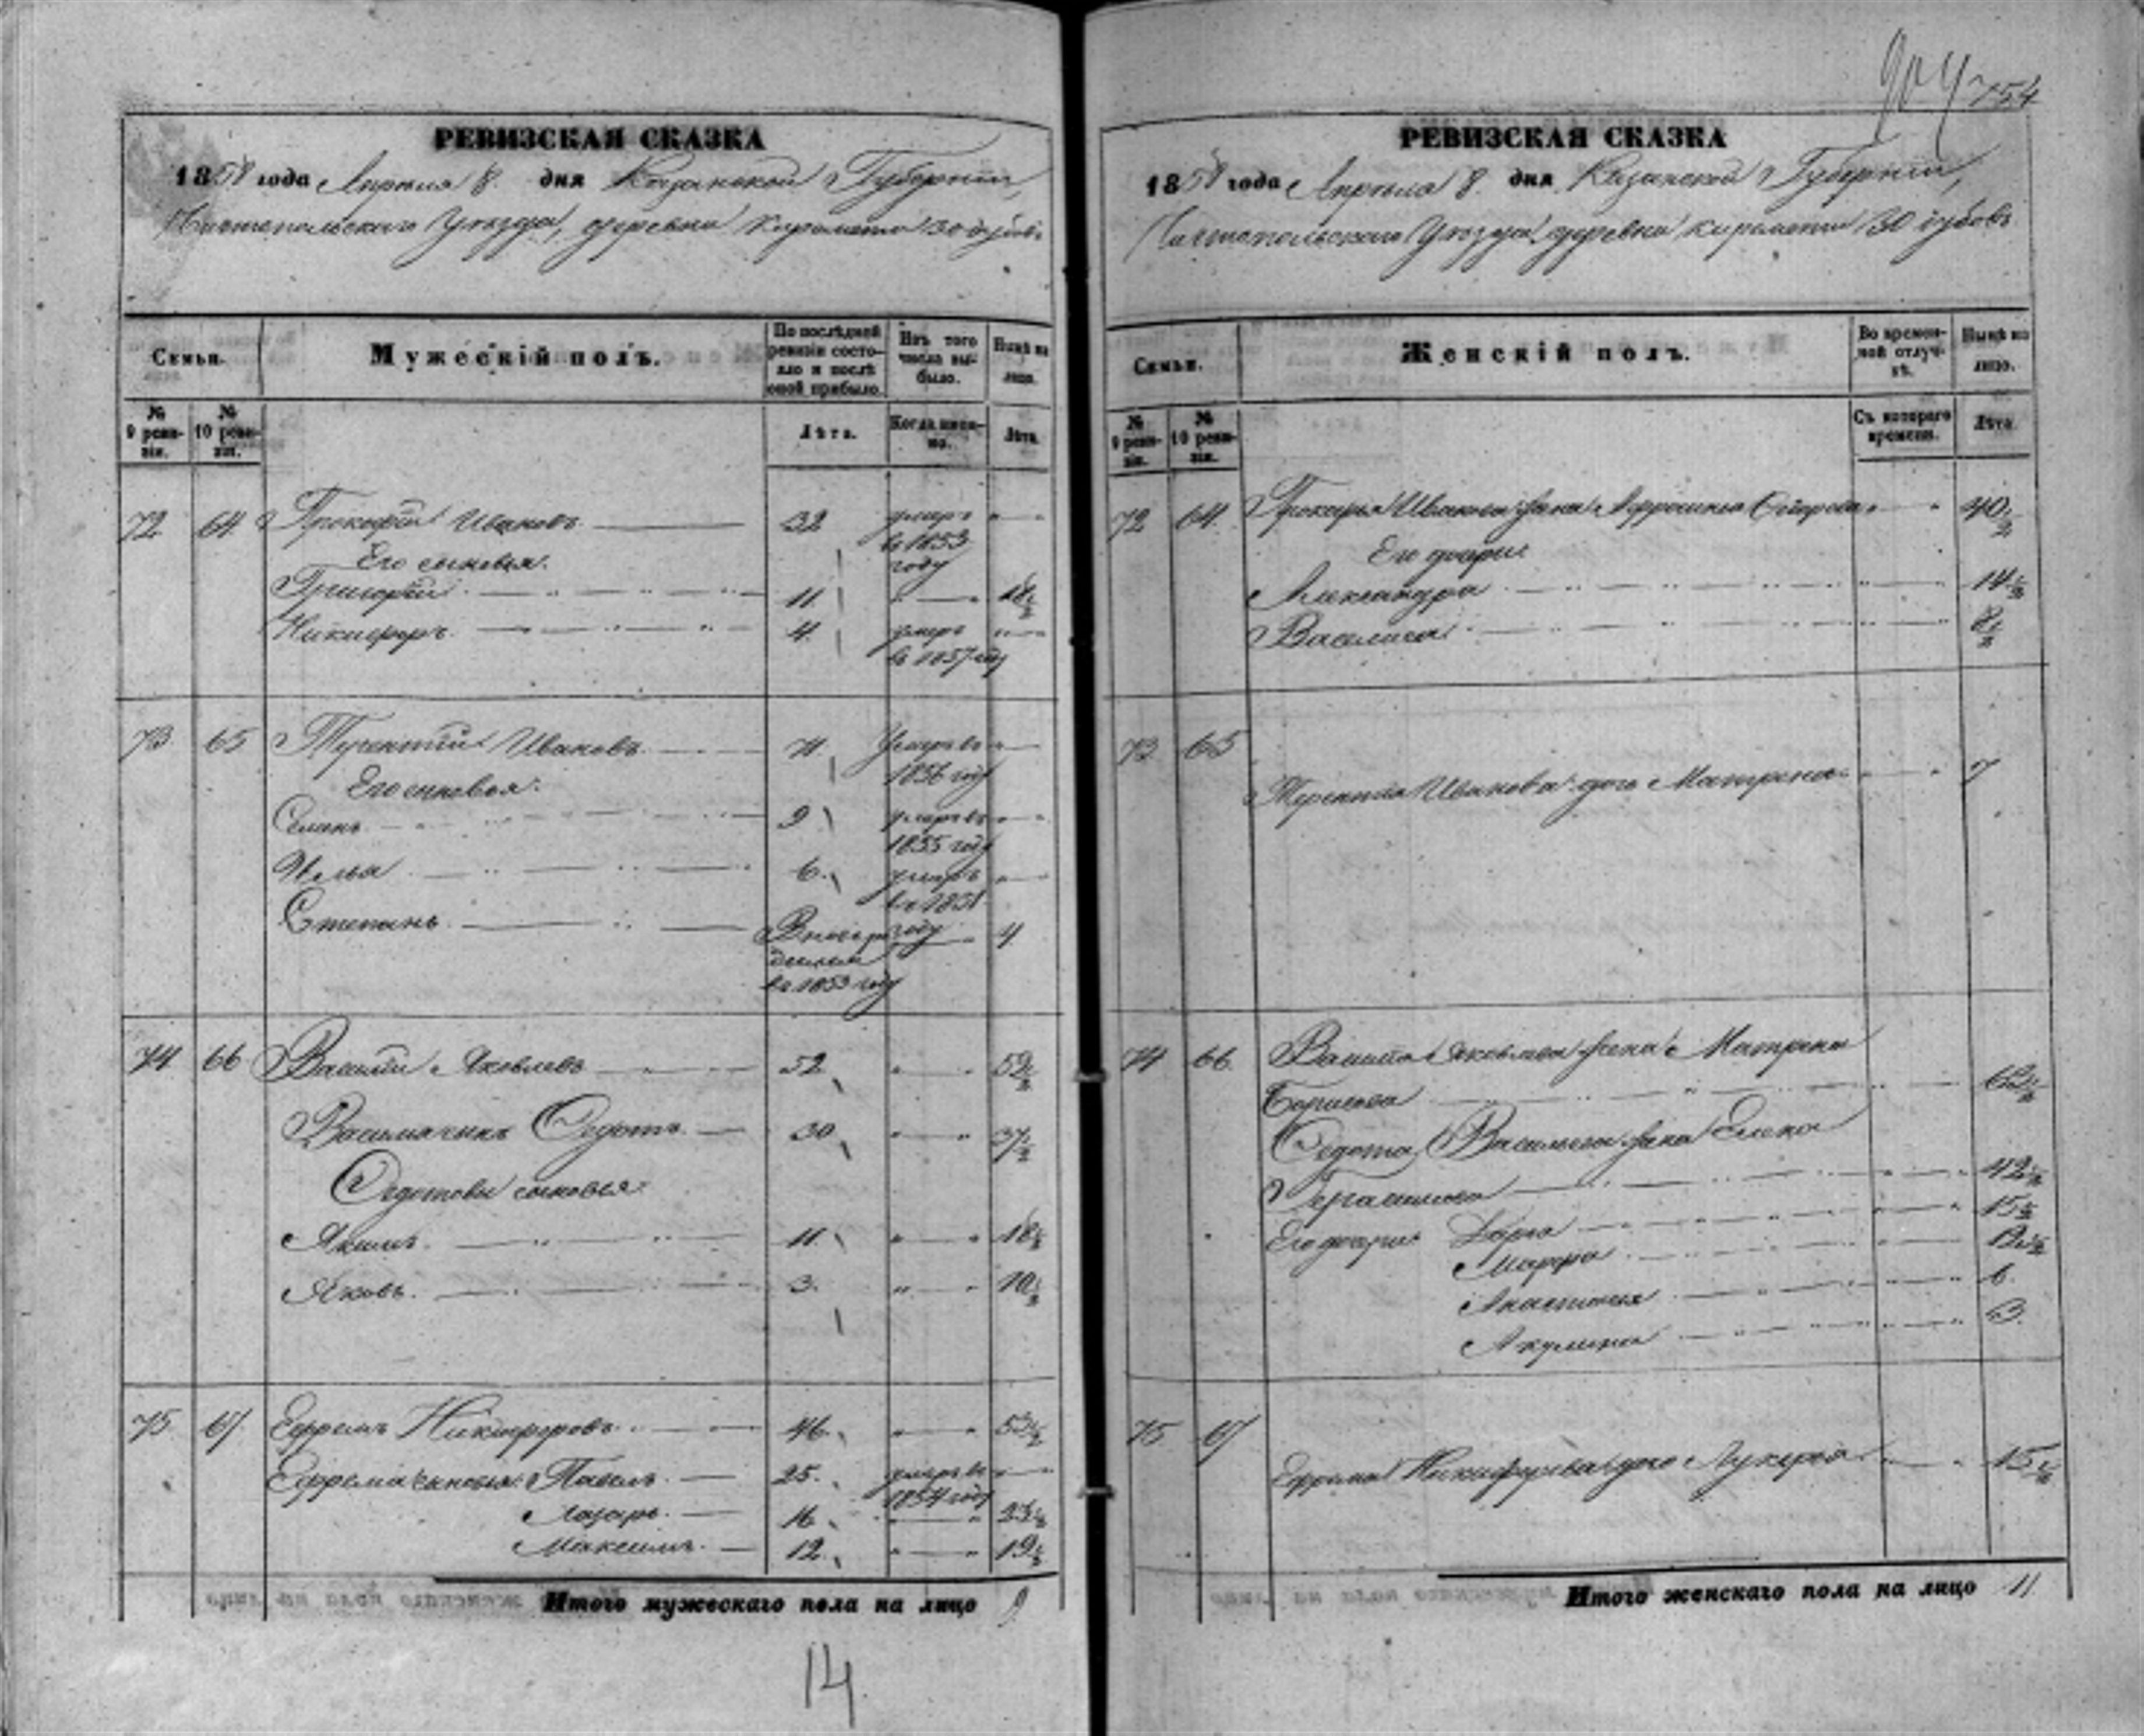 904 754
РЕВИЗСКАЯ СКАЗКА
1858 года Апреля 8. дня Казанской Губернии,
Чистопольского Уезда, деревни Киремети 30 дубовъ
Семьи.
Мужескій полъ.
По послѣдней ревизіи состояло и послѣ оной прибыло.
Изъ того числа выбыло.
Нынѣ на лицо.
№ 9 ревизіи.
№ 10 ревизіи.
Лѣта.
Когда именно.
Лѣта.
72 64 Прокофій Ивановъ 32 умеръ въ 1853 году
Его сыновья.
Григорій 11 18½
Никифоръ 4 умеръ въ 1857 году
73 65 Терентій Ивановъ умеръ въ 1856 году
Его сыновья.
Семенъ 9 умеръ въ 1855 году
Илья 6 умеръ въ 1851 году
Степанъ въ 1853 году 4
74 66 Василій Яковлевъ 52 59½
Василья сынъ Федотъ 30 37½
Федотовы сыновья
Якимъ 11 18½
Яковъ 3 10½
75 67 Ефремъ Никифоровъ 46 53½
Ефрема сыновья Павелъ 25 умеръ въ 1854 году
Лазарь 16 23½
Максимъ 12 19½
Итого мужескаго пола на лицо 9
14
РЕВИЗСКАЯ СКАЗКА
1858 года Апреля 8. дня Казанской Губернии,
Чистопольского Уезда, деревни Киремети 30 дубовъ
Семьи.
Женскій полъ.
Во временной отлучкѣ.
Нынѣ на лицо.
№ 9 ревизіи.
№ 10 ревизіи.
Съ котораго времени.
Лѣта.
72 64 Прокофья Иванова жена 40½
Его дочери
Александра 14½
Василиса 8½
73 65
Терентья Иванова дочь Матрена 7
74 66 Василья Яковлева жена Матрена
Борисова
Федота Васильева жена Елена
Герасимова 42½
Его дочери Дарья 15½
Марфа
Анастасья 6
Акулина 3
75 67
Ефрема Никифорова дочь Лукерья 15½
Итого женскаго пола на лицо 11